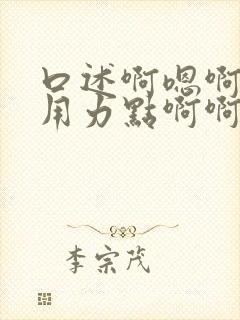 口述啊嗯啊
用力點啊啊
李宗茂